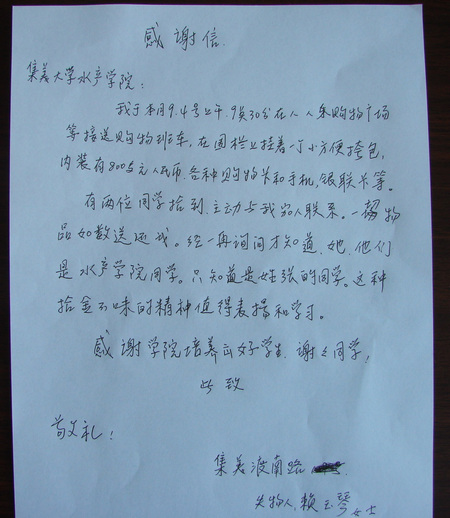 感谢信
集美大学水产学院：
我于本月9.4号上午.9点30分在人人乐购物广场
等接送购物班车,在围栏上挂着一个小方便挎包,
内装有800多元人民币.各种购物卡和手机,银联卡等。
有两位同学拾到.主动与我家人联系。一切物
品如数送还我。经一再询问才知道.她.他们
是水产学院同学。只知道是姓张的同学。这种
拾金不昧的精神值得表扬和学习。
感谢学院培养出好学生.谢谢同学！
此致
敬礼！
集美渡南路
失物人.赖玉琴女士